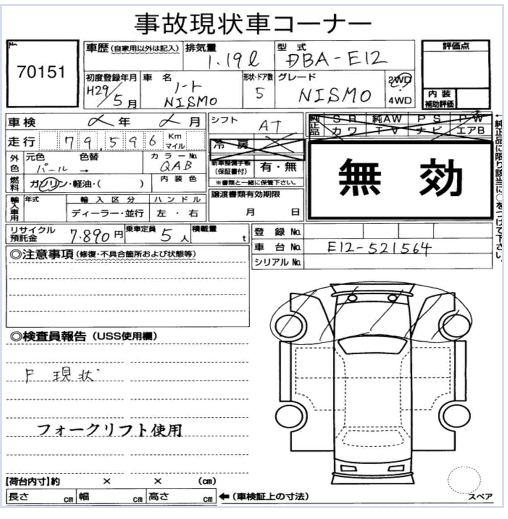 事故現状車コーナー
70151
車歴 (自家用以外は記入) 排気量 1.19ℓ 型式 DBA-E12 評価点
初度登録年月 H29/5月 車名 ノート NISMO 形状・ドア数 5 グレード NISMO 2WD 4WD 内装補助評価
車検 年 月 シフト AT 純正品 SR 純AW PS PW
カワ TV ナビ エアB
走行 79,596 Km マイル 冷房
外色 元色 パール→ 色替 カラーNo. QAB 新車整備手帳(保証書付) 有・無
※書類と一緒に保管下さい。
燃料 ガソリン・軽油・( ) 内装色
無効
輸入車用 年式 輸入区分 ハンドル 譲渡書類有効期限
ディーラー・並行 左・右 月 日
リサイクル預託金 7.890円 乗車定員 5人 積載量 t 登録No.
車台No. E12-521564
シリアルNo.
◎注意事項 (修復・不具合箇所および状態等)
◎検査員報告 (USS使用欄)
F 現状
フォークリフト使用
【荷台内寸】約 × × (cm)
長さ cm 幅 cm 高さ cm ←(車検証上の寸法)
スペア
↑純正品に限り該当に○をつけて下さい。